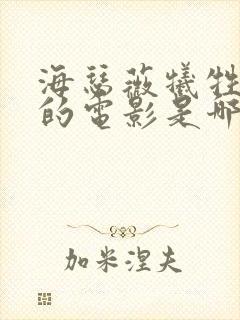 海瑟薇犧牲
的電影是哪
加米涅夫